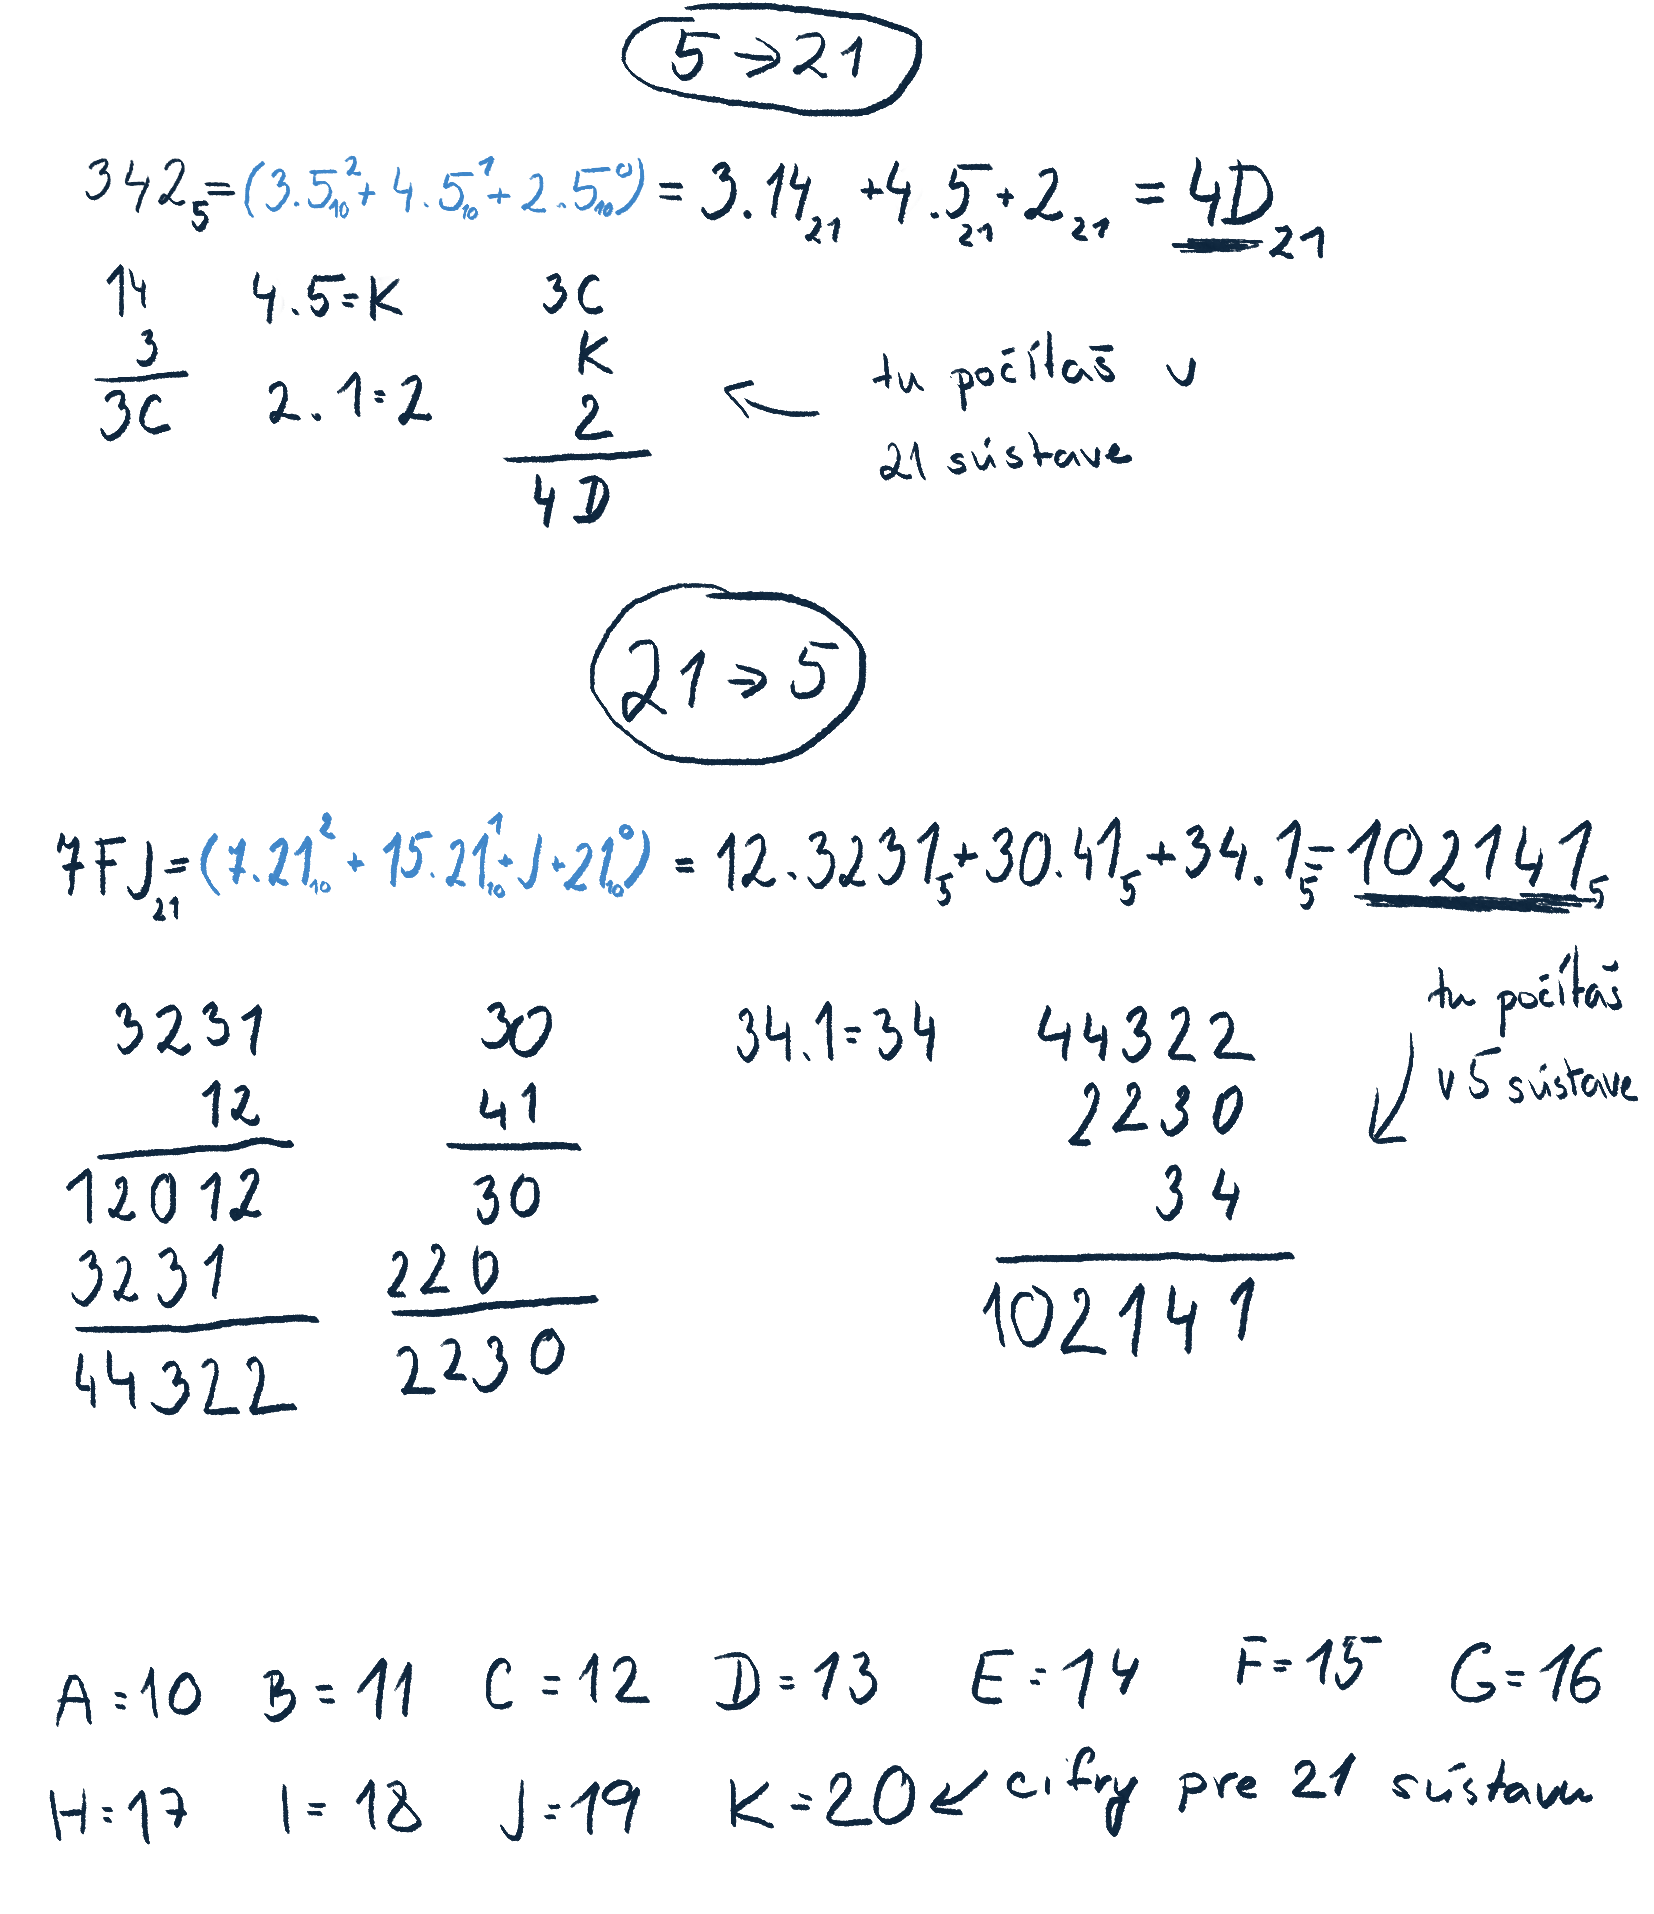 5→21
342₅=(3.5₁₀²+4.5₁₀¹+2.5₁₀⁰)=3.14₂₁+4.5₂₁+2₂₁=4D₂₁
14 4.5=K 3C
3 K
3C 2.1=2 2
4D
tu počítaš v
21 sústave
21→5
7FJ₂₁=(7.21₁₀²+15.21₁₀¹+J+21₁₀⁰)=12.3231₅+30.41₅+34.1₅=102141₅
3231 30 34.1=34 44322
12 41 2230
12012 30 34
3231 220
44322 2230 102141
tu počítaš
v 5 sústave
A=10 B=11 C=12 D=13 E=14 F=15 G=16
H=17 I=18 J=19 K=20 ↙ cifry pre 21 sústavu